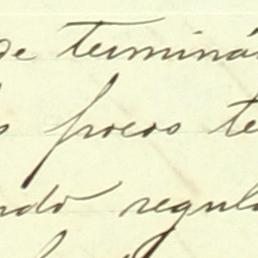 de terminá
s focos te
ndo regula